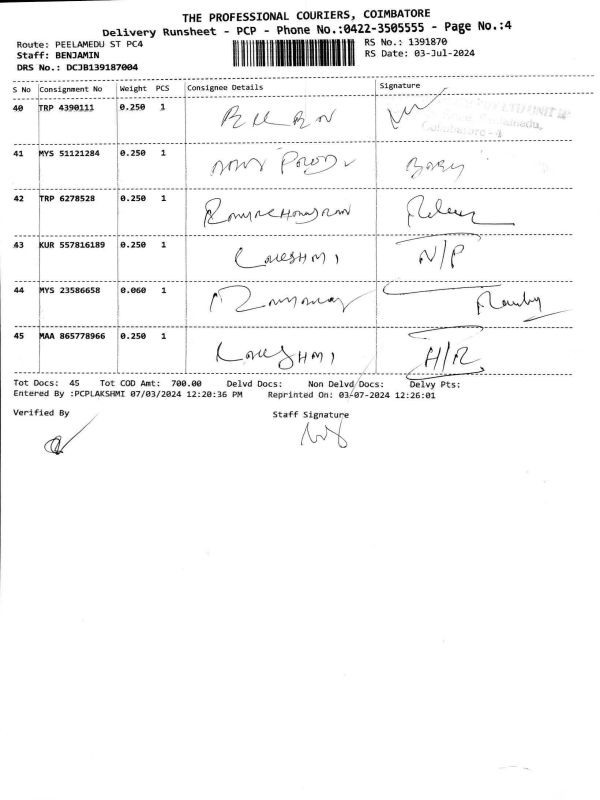 THE PROFESSIONAL COURIERS, COIMBATORE
Delivery Runsheet - PCP - Phone No.:0422-3505555 - Page No.:4
Route: PEELAMEDU ST PC4 RS No.: 1391870
Staff: BENJAMIN RS Date: 03-Jul-2024
DRS No.: DCJB139187004
S No Consignment No Weight PCS Consignee Details Signature
40 TRP 4390111 0.250 1
41 MYS 51121284 0.250 1
42 TRP 6278528 0.250 1
43 KUR 557816189 0.250 1 N/P
44 MYS 23586658 0.060 1
45 MAA 865778966 0.250 1 H/R
Tot Docs: 45 Tot COD Amt: 700.00 Delvd Docs: Non Delvd Docs: Delvy Pts:
Entered By :PCPLAKSHMI 07/03/2024 12:20:36 PM Reprinted On: 03-07-2024 12:26:01
Verified By Staff Signature